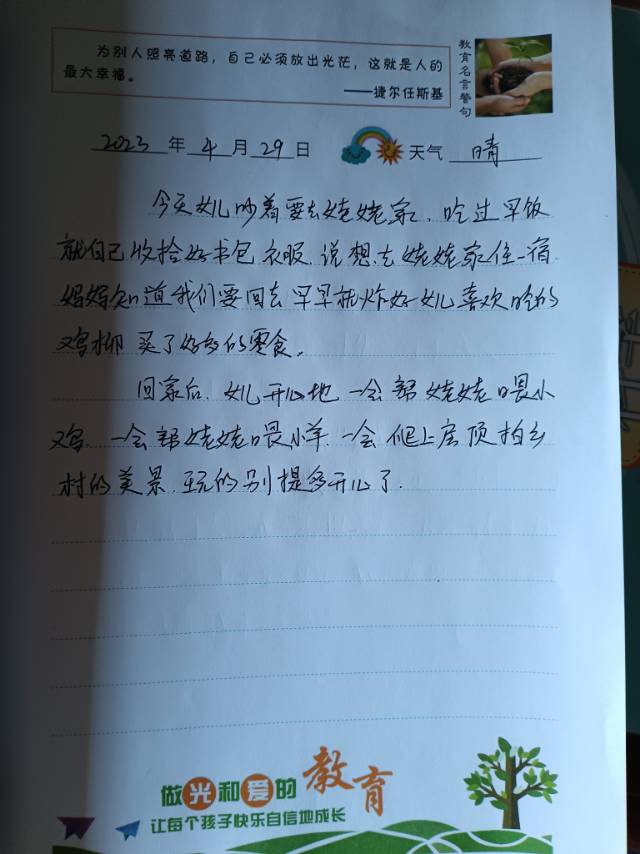 为别人照亮道路，自己必须放出光芒，这就是人的
最大幸福。
——捷尔任斯基
教育名言警句
2023年4月29日 天气 晴
今天女儿吵着要去姥姥家，吃过早饭
就自己收拾好书包衣服，说想去姥姥家住一宿
妈妈知道我们要回去早早就炸好女儿喜欢吃的
鸡柳 买了好多的零食。
回家后，女儿开心地一会帮姥姥喂小
鸡，一会帮姥姥喂小羊，一会爬上房顶拍乡
村的美景，玩的别提多开心了.
做光和爱的教育
让每个孩子快乐自信地成长